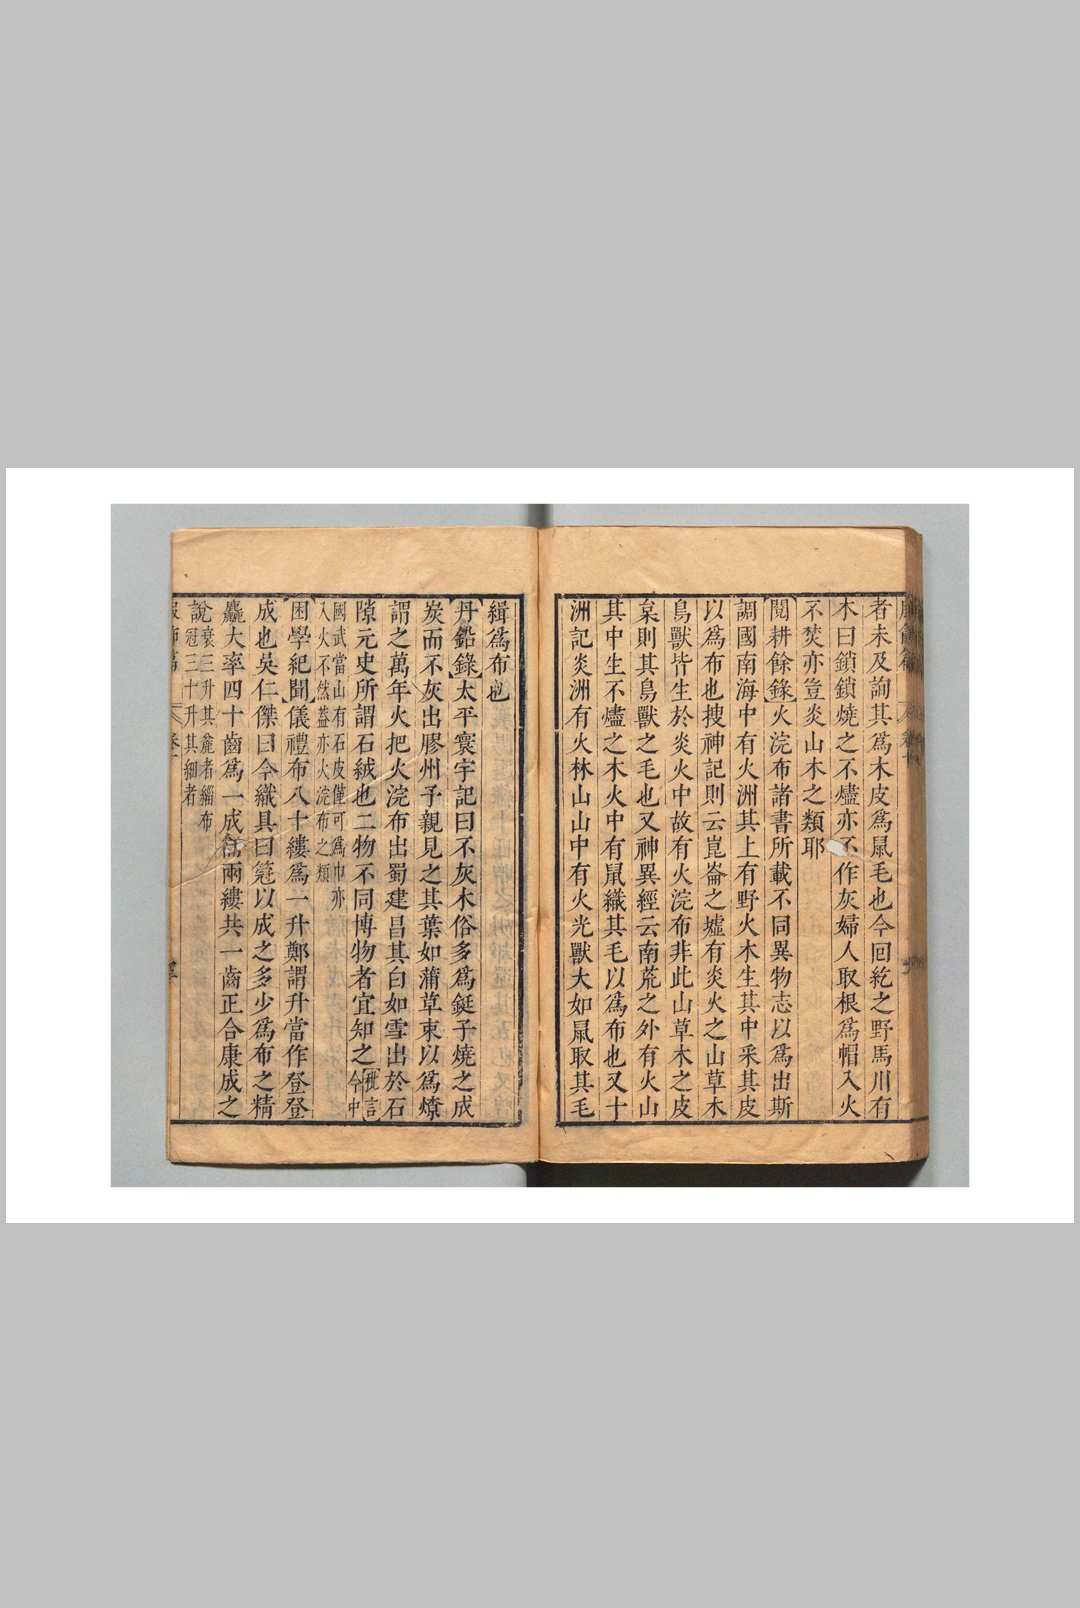 者未及詢其爲木皮爲鼠毛也今回紇之野馬川有
木曰鎖鎖燒之不燼亦不作灰婦人取根爲帽入火
不焚亦豈炎山木之類耶
閱耕餘錄火浣布諸書所載不同異物志以爲出斯
調國南海中有火洲其上有野火木生其中采其皮
以爲布也搜神記則云崑崙之墟有炎火之山草木
鳥獸皆生於炎火中故有火浣布非此山草木之皮
枲則其鳥獸之毛也又神異經云南荒之外有火山
其中生不燼之木火中有鼠織其毛以爲布也又十
洲記炎洲有火林山山中有火光獸大如鼠取其毛
緝爲布也
丹鉛錄太平寰宇記曰不灰木俗多爲鋋子燒之成
炭而不灰出膠州予親見之其葉如蒲草束以爲燎
謂之萬年火把火浣布出蜀建昌其白如雪出於石
隙元史所謂石絨也二物不同博物者宜知之枇言今中
國武當山有石皮僅可爲巾亦
入火不然葢亦火浣布之類
困學紀聞儀禮布八十縷爲一升鄭謂升當作登登
成也吳仁傑曰今織具曰簆以成之多少爲布之精
麤大率四十齒爲一成而兩縷共一齒正合康成之
說衰三升其麄者緇布
冠三十升其細者
服飾篇 卷十